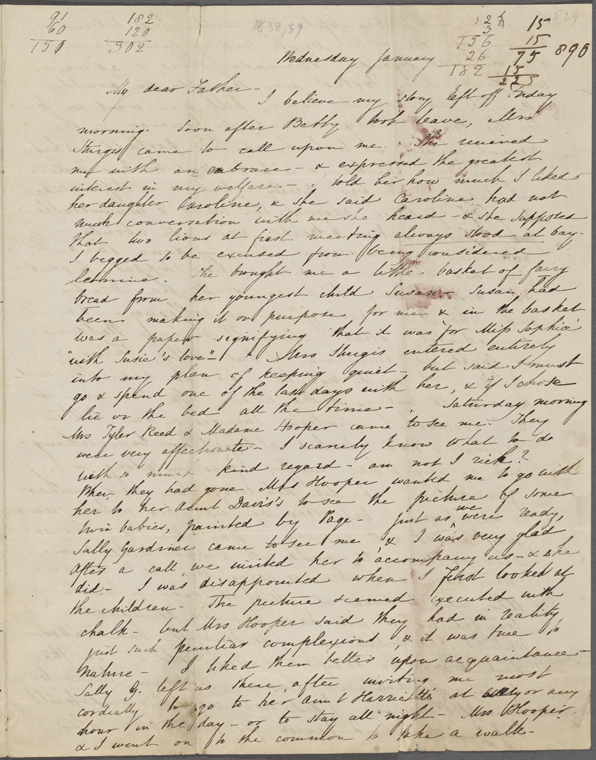 91 182 1838,39 2 15 529
60 120 3 15
151 302 156 75 890
26 15
182 225
Wednesday January
My dear Father—
I believe my story left off Friday
morning. Soon after Betty took leave, Mrs
Sturgis came to call upon me. She received
me with an embrace— & expressed the greatest
interest in my welfare— I told her how much I liked
her daughter Caroline, & she said Caroline had not
much conversation with me she heard— & she supposed
that two lions at first meeting always stood at bay—
I begged to be excused from being considered
leonine. She brought me a little basket of fairy
bread from her youngest child Susan. Susan had
been making it on purpose for me & in the basket
was a paper signifying that it was for "Miss Sophia
"with Susie's love"! Mrs Sturgis entered entirely
into my plan of keeping quiet— but said I must
go & spend one of the last days with her, & if I chose
lie on the bed all the time— Saturday morning
Mrs Tyler Reed & Madame Hooper came to see me. They
were very affectionate— I scarcely know what to do
with so much kind regard— am not I rich?
When they had gone Mrs Hooper wanted me to go with
her to her Aunt Davis's to see the picture of some
twin babies, painted by Page— Just as we were ready,
Sally Gardner came to see me, & I was very glad
After a call, we invited her to accompany us— & she
did— I was disappointed when I first looked at
the children— The picture seemed executed with
chalk— but Mrs Hooper said they had in reality
just such peculiar complexions, & it was true to
Nature— I liked them better upon acquaintance—
Sally G. left us there, after inviting me most
cordially to go to her Aunt Harriette's at any or any
hour in the day— or to stay all night— Mrs Hooper
& I went on to the common to take a walk—